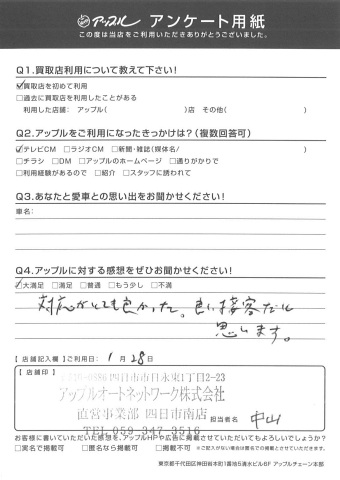 アップル アンケート用紙
この度は当店をご利用いただきありがとうございました。
Q1.買取店利用について教えて下さい！
☑買取店を初めて利用
□過去に買取店を利用したことがある
利用した店舗： アップル(　　　　)店 その他(　　　　)
Q2.アップルをご利用になったきっかけは？(複数回答可)
☑テレビCM □ラジオCM □新聞・雑誌(媒体名/　　　　)
□チラシ □DM □アップルのホームページ □通りがかりで
□利用経験があるので □紹介 □スタッフに誘われて
Q3.あなたと愛車との思い出をお聞かせください！
車名：
Q4.アップルに対する感想をぜひお聞かせください！
☑大満足 □満足 □普通 □もう少し □不満
対応がとても良かった。良い接客だと
思います。
【 店舗記入欄 】ご利用日： 1月 28日
【 店舗印 】
四日市市日永東1丁目2-23
アップルオートネットワーク株式会社
直営事業部 四日市南店
TEL 059-347-3516
担当者名 中山
お客様に書いていただいた感想を、アップルHPや広告に掲載させていただいてもよろしいでしょうか？
□実名で掲載可 □匿名なら掲載可 □掲載不可 ※ご記入がない場合は匿名での掲載とさせていただきます。
東京都千代田区神田司本町1番地5清水ビル6F アップルチェーン本部